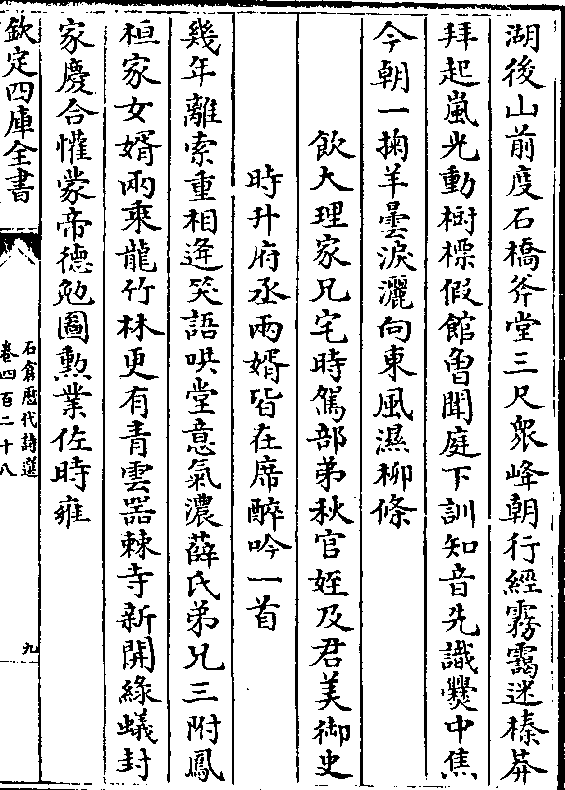 湖後山前度石橋斧堂三尺衆峰朝行經霧靄迷榛莽
拜起嵐光動樹標假館魯聞庭下訓知音先識爨中焦
今朝一掬羊曇淚灑向東風濕柳條
飲大理家兄宅時駕部弟秋官姪及君美御史
時升府丞兩婿皆在席醉吟一首
幾年離索重相逢笑語哄堂意氣濃薛氏弟兄三附鳳
桓家女婿兩乘龍竹林更有青雲器棘寺新開綠蟻封
家慶合懽蒙帝德勉圖勲業佐時雍
欽定四庫全書
石倉歷代詩選
卷四百二十八
九